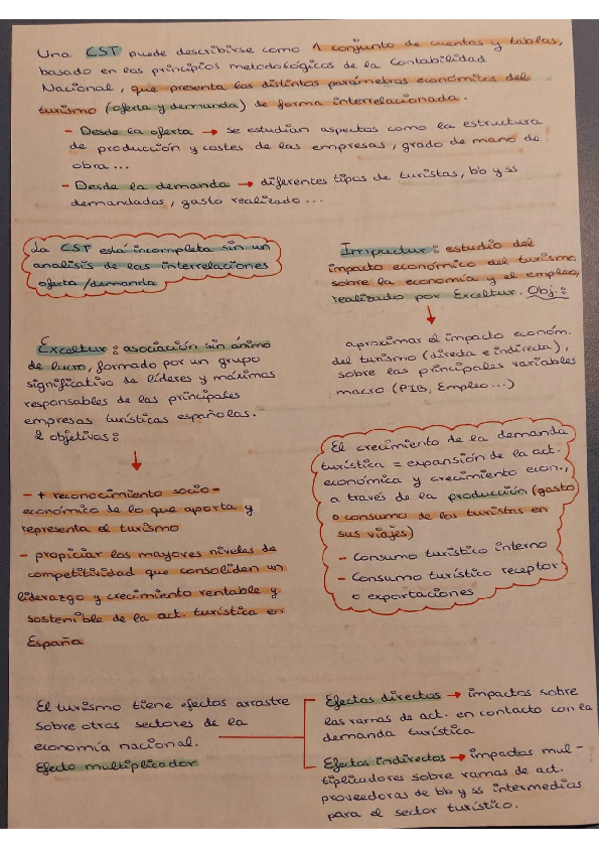 Una CST puede describirse como 1 conjunto de cuentas y tablas,
basado en los principios metodológicos de la Contabilidad
Nacional, que presenta los distintos parámetros económicos del
turismo (oferta y demanda) de forma interrelacionada.
- Desde la oferta → se estudian aspectos como la estructura
de producción y costes de las empresas, grado de mano de
obra...
- Desde la demanda → diferentes tipos de turistas, bb y ss
demandados, gasto realizado...
La CST está incompleta sin un
analisis de las interrelaciones
oferta/demanda
Exceltur: asociación sin ánimo
de lucro, formado por un grupo
significativo de líderes y máximas
responsables de las principales
empresas turísticas españolas.
2 objetivos:
- + reconocimiento socio-
económico de lo que aporta y
representa el turismo
- propiciar los mayores niveles de
competitividad que consoliden un
liderazgo y crecimiento rentable y
sostenible de la act. turística en
España
Impactur: estudio del
impacto económico del turismo
sobre la economía y el empleo,
realizado por Exceltur. Obj.:
aproximar el impacto económ.
del turismo (directa e indirecta),
sobre las principales variables
macro (PIB, Empleo...)
El crecimiento de la demanda
turística = expansión de la act.
económica y crecimiento econ.,
a través de la producción (gasto
o consumo de los turistas en
sus viajes)
- Consumo turístico interno
- Consumo turístico receptor
o exportaciones
El turismo tiene efectos arrastre
sobre otros sectores de la
economía nacional.
Efecto multiplicador
Efectos directos → impactos sobre
las ramas de act. en contacto con la
demanda turística
Efectos indirectos → impactos mul-
tiplicadores sobre ramas de act.
proveedoras de bb y ss intermedias
para el sector turístico.